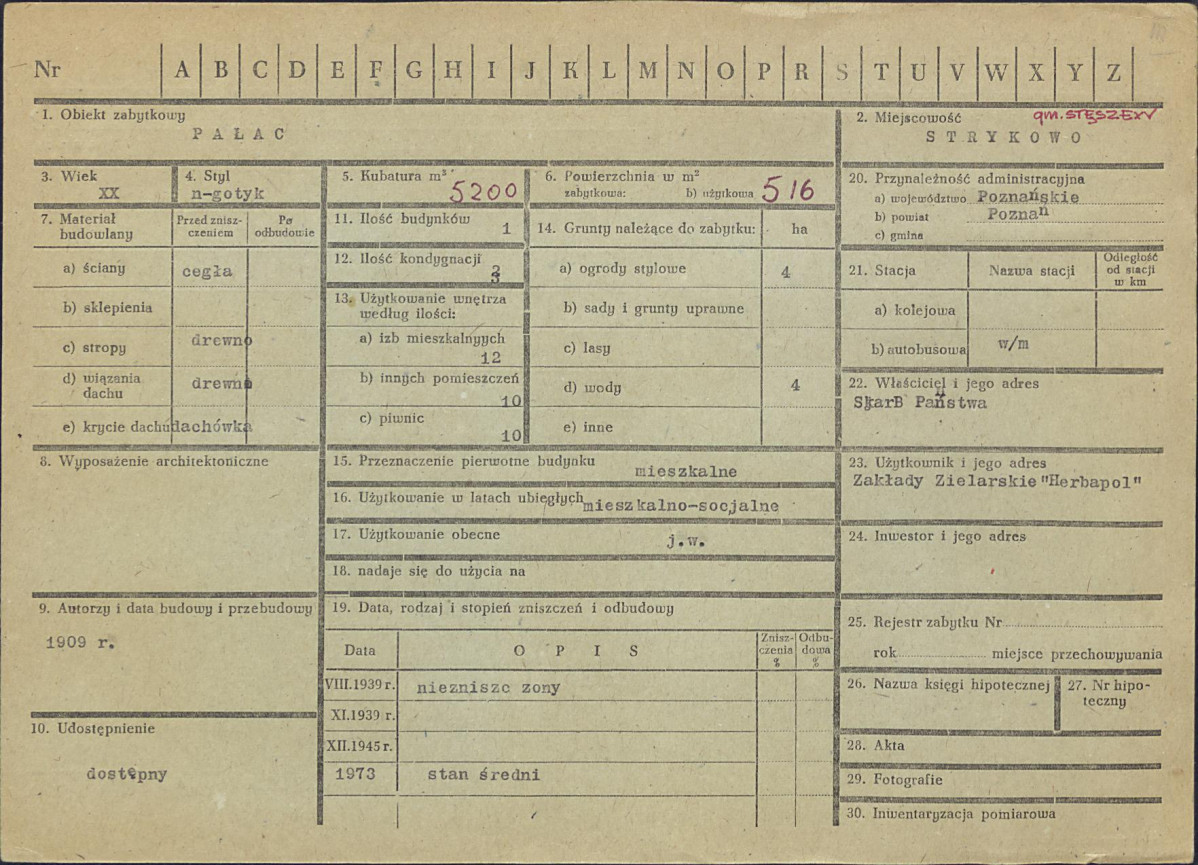 Nr A B C D E F G H I J K L M N O P R S T U V W X Y Z
1. Obiekt zabytkowy
PAŁAC
2. Miejscowość gm. STĘSZEW
STRYKOWO
3. Wiek
XX
4. Styl
n-gotyk
5. Kubatura m³
5200
6. Powierzchnia w m²
zabytkowa: b) użytkowa 516
20. Przynależność administracyjna
a) województwo Poznańskie
b) powiat Poznań
c) gmina
7. Materiał budowlany
Przed zniszczeniem
Po odbudowie
a) ściany cegła
b) sklepienia
c) stropy drewno
d) wiązania dachu drewno
e) krycie dachu dachówka
11. Ilość budynków
1
12. Ilość kondygnacji
3
13. Użytkowanie wnętrza
według ilości:
a) izb mieszkalnych
12
b) innych pomieszczeń
10
c) piwnic
10
14. Grunty należące do zabytku: ha
a) ogrody stylowe 4
b) sady i grunty uprawne
c) lasy
d) wody 4
e) inne
21. Stacja Nazwa stacji Odległość od stacji w km
a) kolejowa
b) autobusowa w/m
22. Właściciel i jego adres
SkarB Państwa
8. Wyposażenie architektoniczne
15. Przeznaczenie pierwotne budynku
mieszkalne
16. Użytkowanie w latach ubiegłych mieszkalno-socjalne
17. Użytkowanie obecne
j.w.
18. nadaje się do użycia na
23. Użytkownik i jego adres
Zakłady Zielarskie "Herbapol"
24. Inwestor i jego adres
9. Autorzy i data budowy i przebudowy
1909 r.
19. Data, rodzaj i stopień zniszczeń i odbudowy
Data OPIS Zniszczenia % Odbudowa %
VIII.1939 r. niezniszc zony
XI.1939 r.
XII.1945 r.
1973 stan średni
10. Udostępnienie
dostępny
25. Rejestr zabytku Nr
rok miejsce przechowywania
26. Nazwa księgi hipotecznej
27. Nr hipoteczny
28. Akta
29. Fotografie
30. Inwentaryzacja pomiarowa